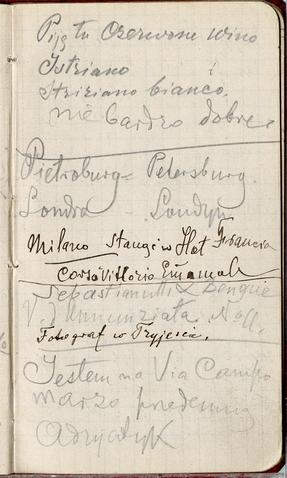 Piję tu Czerwone wino
Istriano i
Striziano bianco.
nie bardzo dobre.
Pietroburg = Petersburg.
Londra - Londyn
Milano stangiw Hot Francia
Corso Vittorio Emanuele
Sebastianutti & Benque
V. Annunziata No
Fotograf w Tryjescie.
Jestem na Via Campo
marzo
Adryatyk